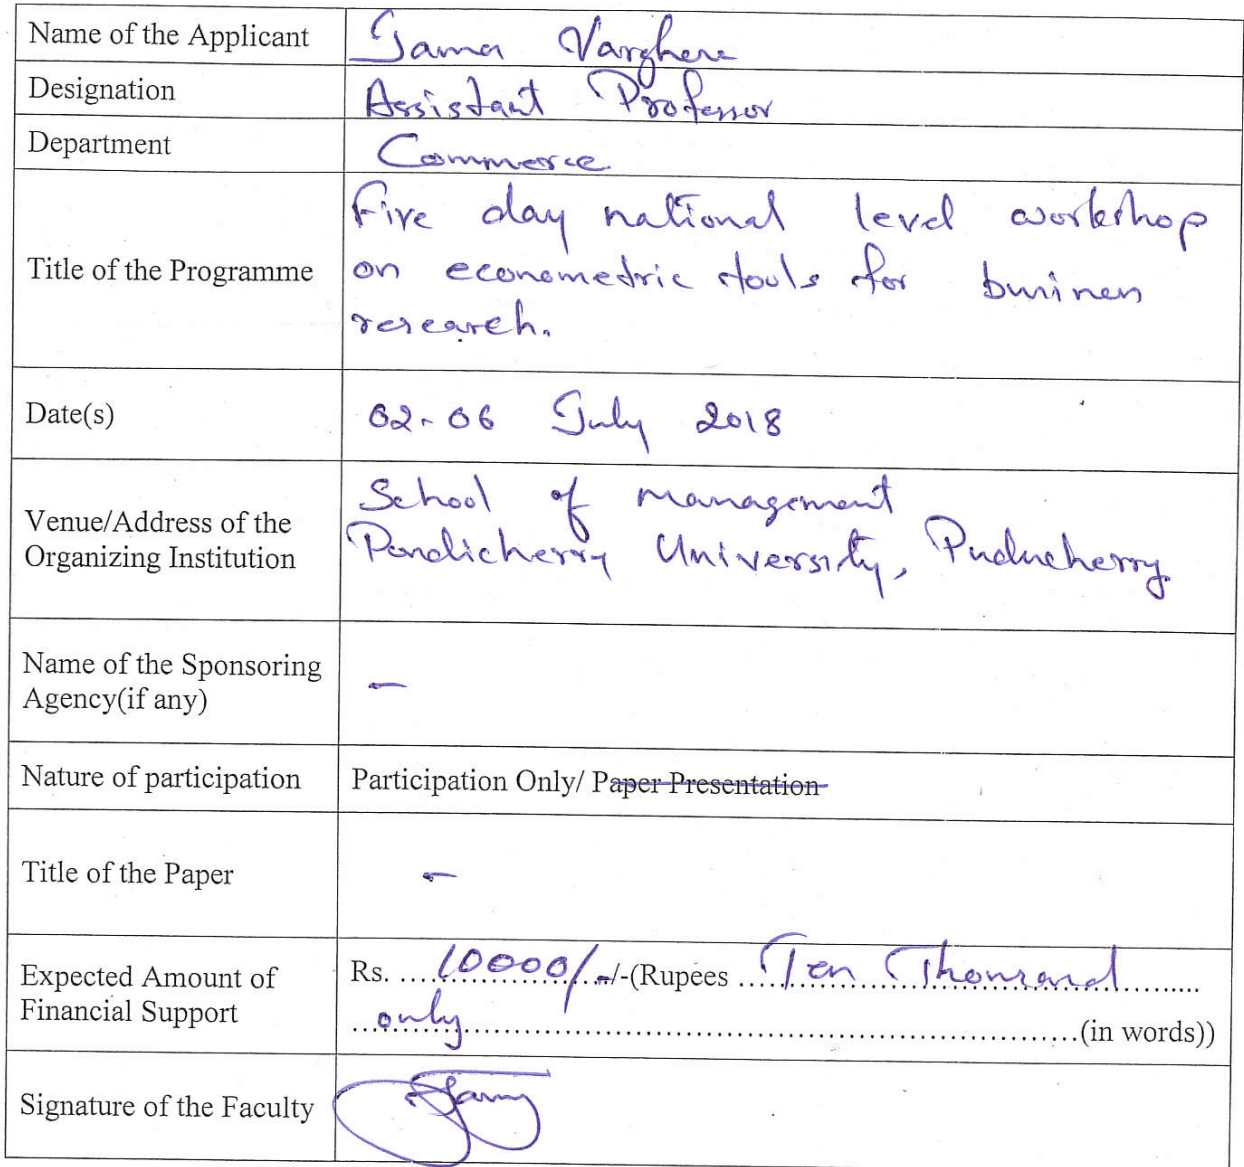 Name of the Applicant Jama Varghese
Designation Assistant Professor
Department Commerce
Title of the Programme Five day national level workshop
on econometric tools for business
research.
Date(s) 02-06 July 2018
Venue/Address of the School of management
Organizing Institution Pondicherry University, Puducherry
Name of the Sponsoring
Agency(if any) -
Nature of participation Participation Only/ Paper Presentation
Title of the Paper -
Expected Amount of Rs. ....10000/-../-(Rupees ....Ten Thousand.......
Financial Support ...only...............................................(in words))
Signature of the Faculty